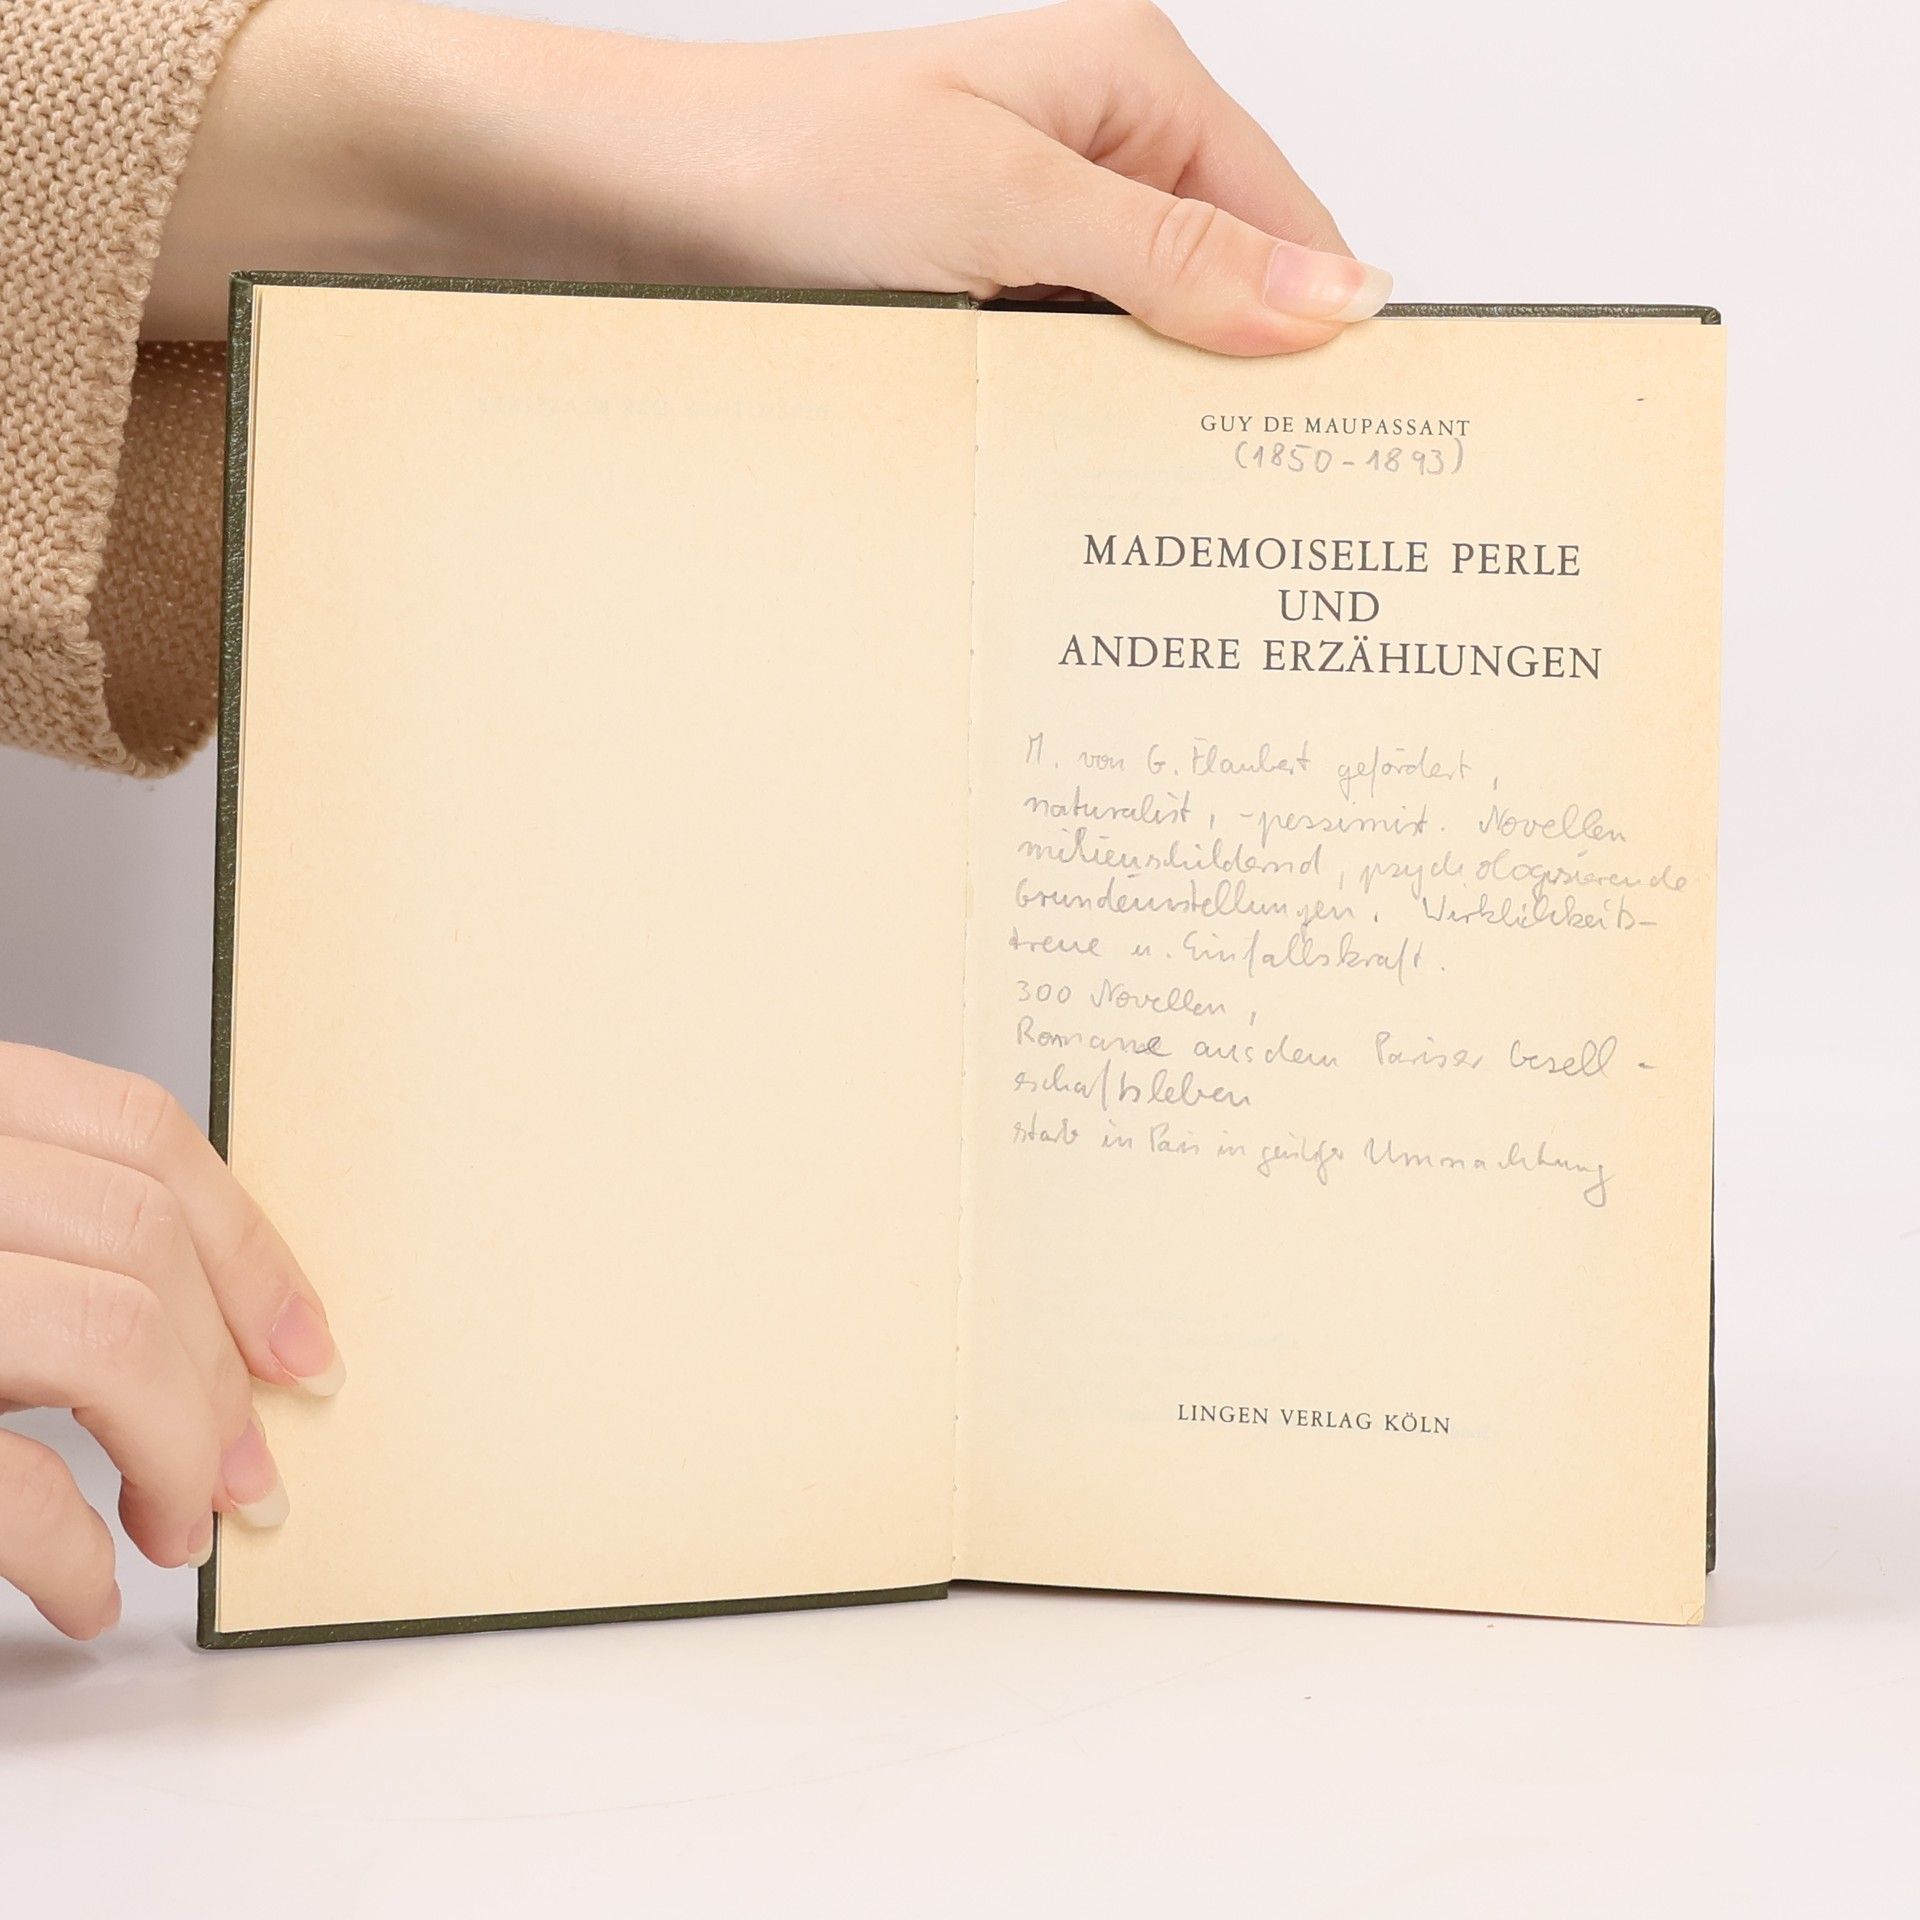 GUY DE MAUPASSANT
(1850-1893)
MADEMOISELLE PERLE
UND
ANDERE ERZÄHLUNGEN
M. von G. Flaubert gefördert,
naturalist, -pessimist. Novellen
milieuschildernd, psychologisierende
Grundeinstellungen. Wirklichkeits-
treue u. Einfallskraft.
300 Novellen,
Romane aus dem Pariser Gesell-
schaftsleben
starb in Paris in geistger Umnachtung
LINGEN VERLAG KÖLN